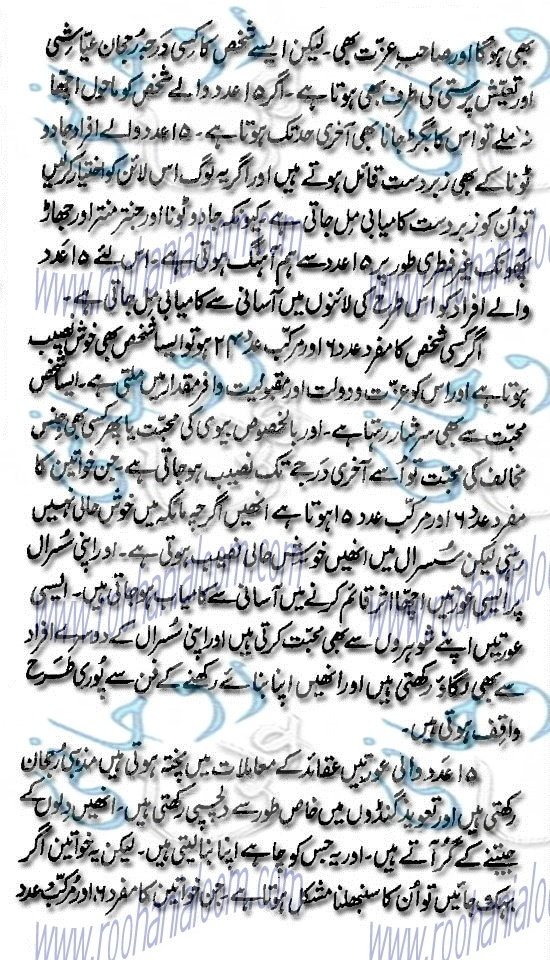 بھی ہوگا اور صاحب عزت بھی۔ لیکن ایسے شخص کا کسی درجہ رُجحان عیّاشی
اور تعیّش پرستی کی طرف بھی ہوتا ہے۔ اگر ۱۵ عدد والے شخص کو ماحول اچھا
نہ ملے تو اس کا بگڑ جانا بھی آخری حد تک ہوتا ہے۔ ۱۵ عدد والے افراد جادو
ٹونا کے بھی زبردست قائل ہوتے ہیں اور اگر یہ لوگ اس لائن کو اختیار کرلیں
تو اُن کو زبردست کامیابی مل جاتی ہے کیونکہ جادو ٹونا اور جنتر منتر اور جھاڑ
پھونک غیر فطری طور پر ۱۵ عدد سے ہم آہنگ ہوتی ہے۔ اس لئے ۱۵ عَدد
والے افراد کو اس طرح کی لائنوں میں آسانی سے کامیابی مل جاتی ہے۔
اگر کسی شخص کا مفرد عدد ۶ اور مرکّب عدد ۲۴ ہو تو ایسا شخص بھی خوش نصیب
ہوتا ہے اور اس کو عزّت و دولت اور مقبولیت وافر مقدار میں ملتی ہے۔ ایسا شخص
محبّت سے بھی سرشار رہتا ہے۔ اور بالخصوص بیوی کی محبّت یا پھر کسی بھی جنس
مخالف کی محبّت تو اُسے آخری درجے تک نصیب ہو جاتی ہے۔ جن خواتین کا
مفرد عدد ۶ اور مرکّب عدد ۱۵ ہوتا ہے انھیں اگرچہ مائکہ میں خوش حالی نہیں
رہتی لیکن سُسرال میں انھیں خوش حالی نصیب ہوتی ہے۔ اور اپنی سُسرال
پر ایسی عورتیں اچھا اثر قائم کرنے میں آسانی سے کامیاب ہو جاتی ہیں۔ ایسی
عورتیں اپنے شوہروں سے بھی محبّت کرتی ہیں اور اپنی سُسرال کے دوسرے افراد
سے بھی لگاؤ رکھتی ہیں اور انھیں اپنا بنائے رکھنے کے فن سے پُوری طَرح
واقِف ہوتی ہیں۔
۱۵ عَدد والی عورتیں عقائد کے معاملات میں پختہ ہوتی ہیں مذہبی رُجحان
رکھتی ہیں اور تعویذ گنڈوں میں خاص طور سے دلچسپی رکھتی ہیں۔ انھیں دِلوں کے
جیتنے کے گُر آتے ہیں۔ اور یہ جس کو چاہے اپنا بنا لیتی ہیں۔ لیکن یہ خواتین اگر
بہک جائیں تو اُن کا سنبھلنا مشکل ہوتا ہے۔ جن خواتین کا مفرد ۶ اور مرکّب عدد
www.roohanialoom.com
www.roohanialoom.com
www.roohanialoom.com
www.roohanialoom.com